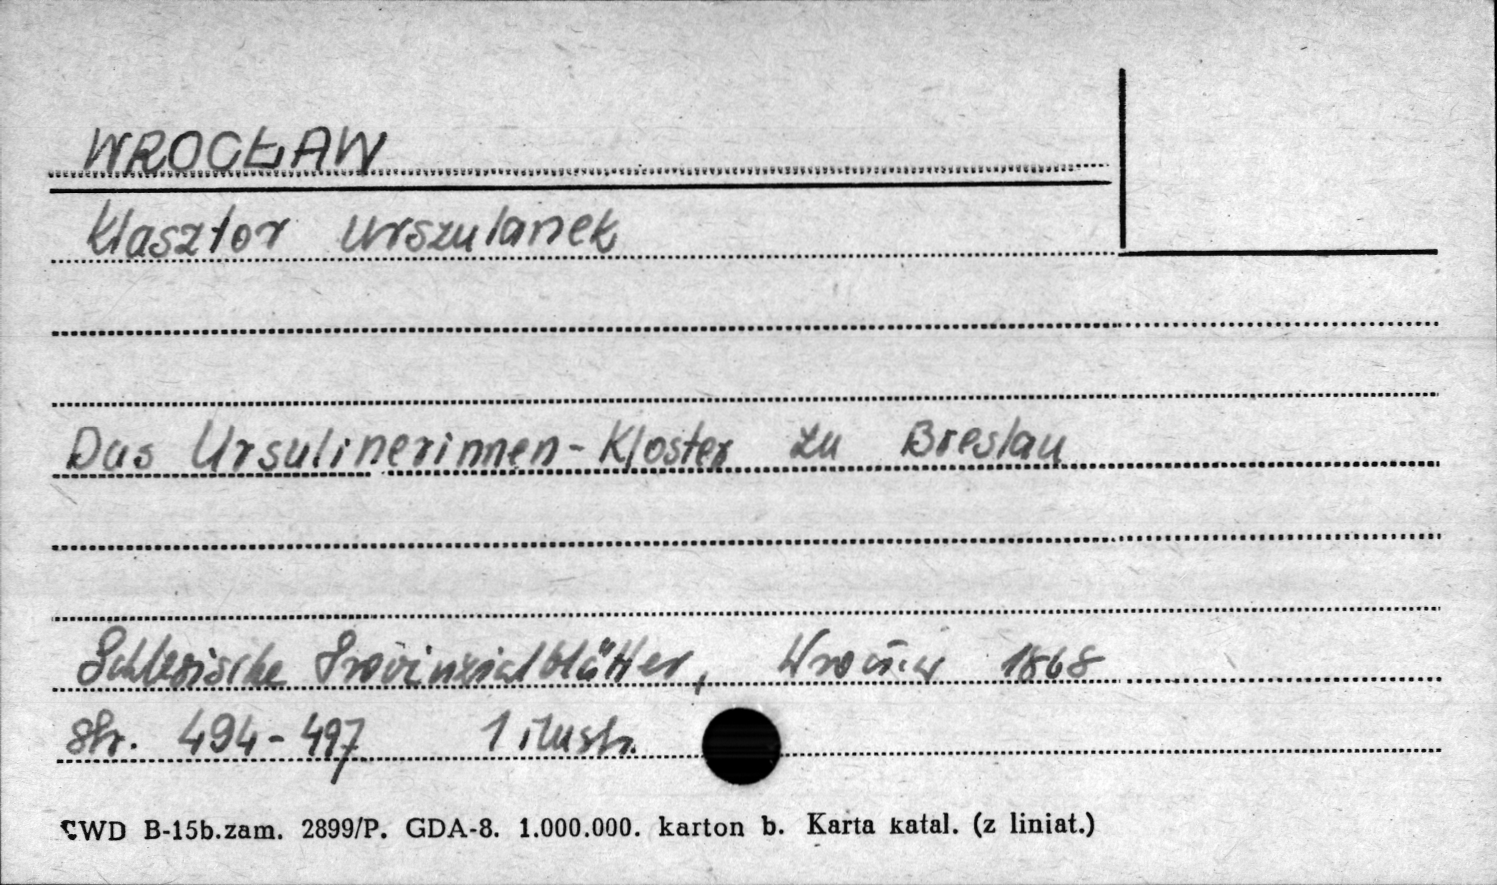 WROCŁAW
Klasztor Urszulanek
Das Ursulinerinnen-Kloster zu Breslau
Schlesische Provinzialblätter, 1868
Str. 494-497 1 ilustr.
CWD B-15b.zam. 2899/P. GDA-8. 1.000.000. karton b. Karta katal. (z liniat.)